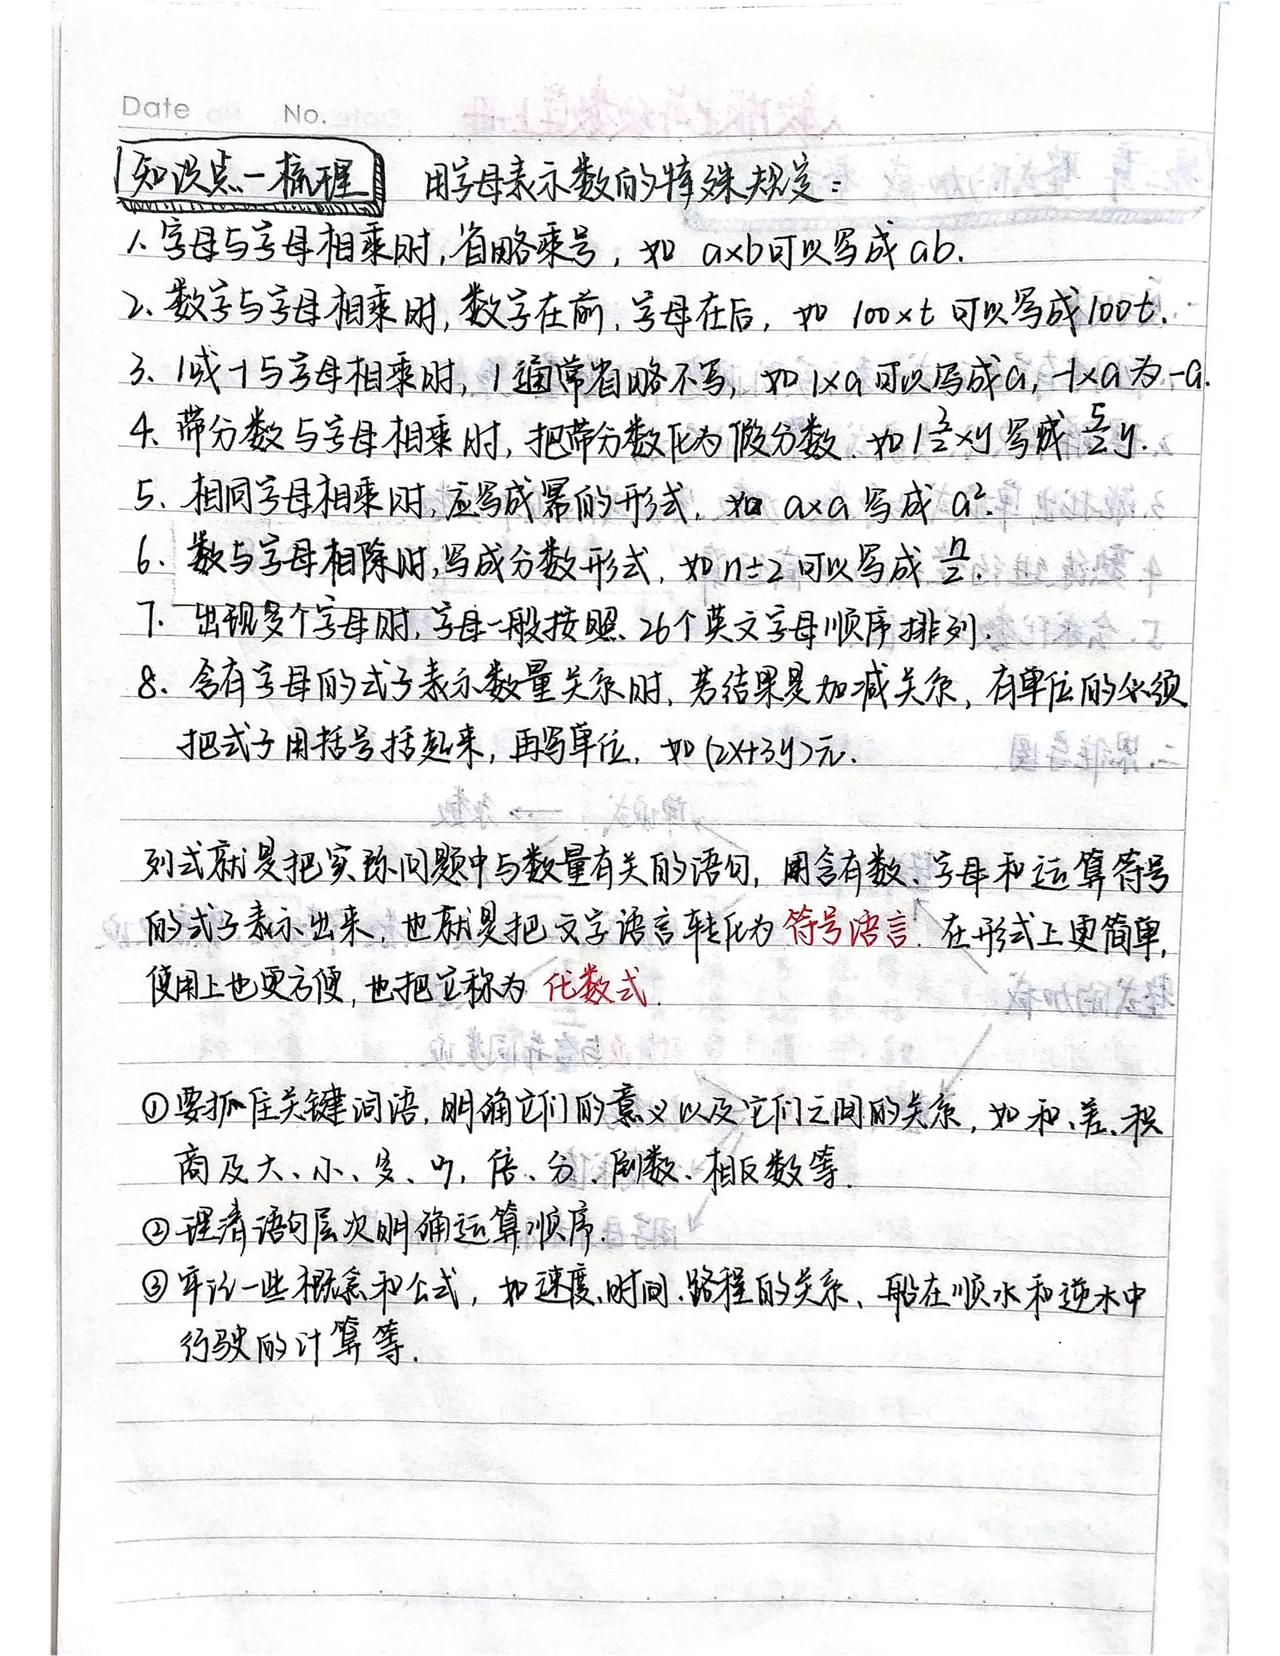 Date No.
知识点一梳理 用字母表示数的特殊规定:
1、字母与字母相乘时,省略乘号,如 a×b可以写成 ab.
2、数字与字母相乘时,数字在前,字母在后,如 100×t 可以写成100t.
3、1或-1与字母相乘时,1通常省略不写,如 1×a 可以写成a,-1×a 为 -a.
4、带分数与字母相乘时,把带分数化为假分数、如1 3/2×y 写成 5/2 y.
5、相同字母相乘时,应写成幂的形式,如 a×a 写成 a².
6、数与字母相除时,写成分数形式,如 n÷2 可以写成 n/2.
7、出现多个字母时,字母一般按照、26个英文字母顺序排列.
8、含有字母的式子表示数量关系时,若结果是加减关系,有单位的必须
把式子用括号括起来,再写单位,如 (2x+3y)元.
列式就是把实际问题中与数量有关的语句,用含有数、字母和运算符号
的式子表示出来,也就是把文字语言转化为 符号语言. 在形式上更简单,
使用上也更方便,也把它称为 代数式.
①要抓住关键词语,明确它们的意义以及它们之间的关系,如 和、差、积
商及大、小、多、少,倍、分、倒数、相反数等.
②理清语句层次明确运算顺序.
③牢记一些概念和公式,如速度、时间、路程的关系、船在顺水和逆水中
行驶的计算等.